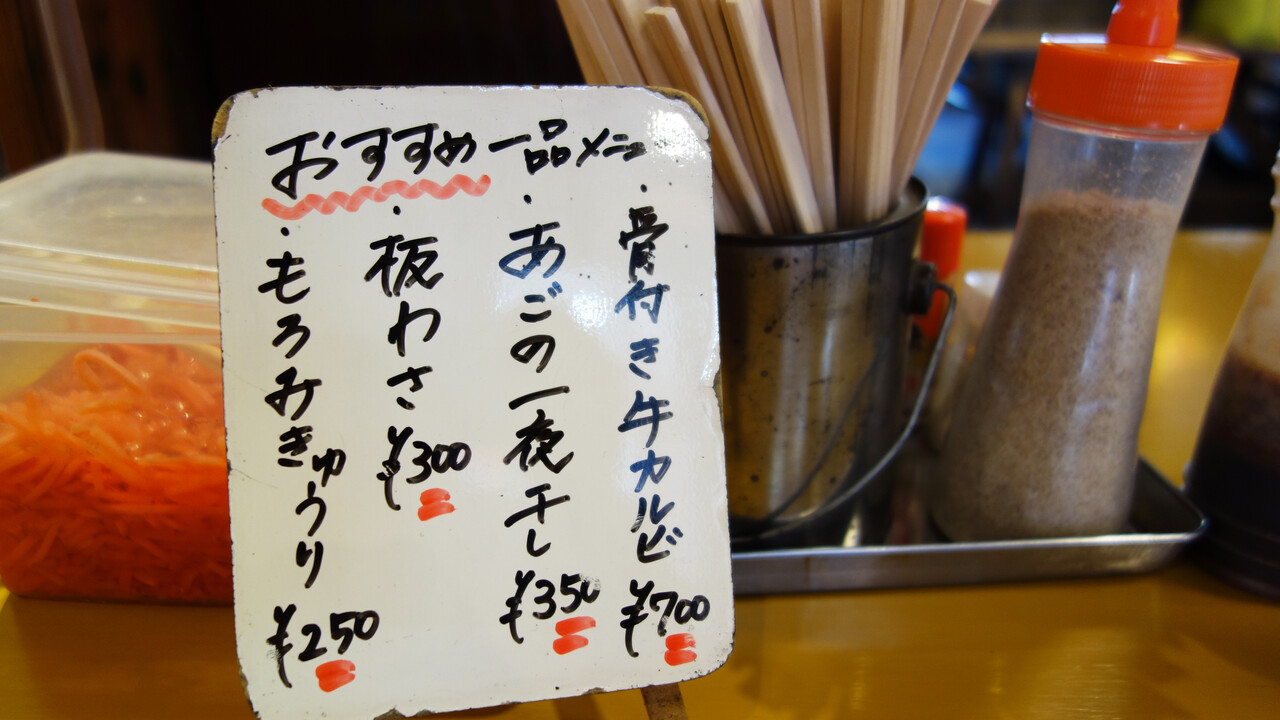 おすすめ一品メニュー
・骨付き牛カルビ ¥700
・あごの一夜干し ¥350
・板わさ ¥300
・もろみきゅうり ¥250